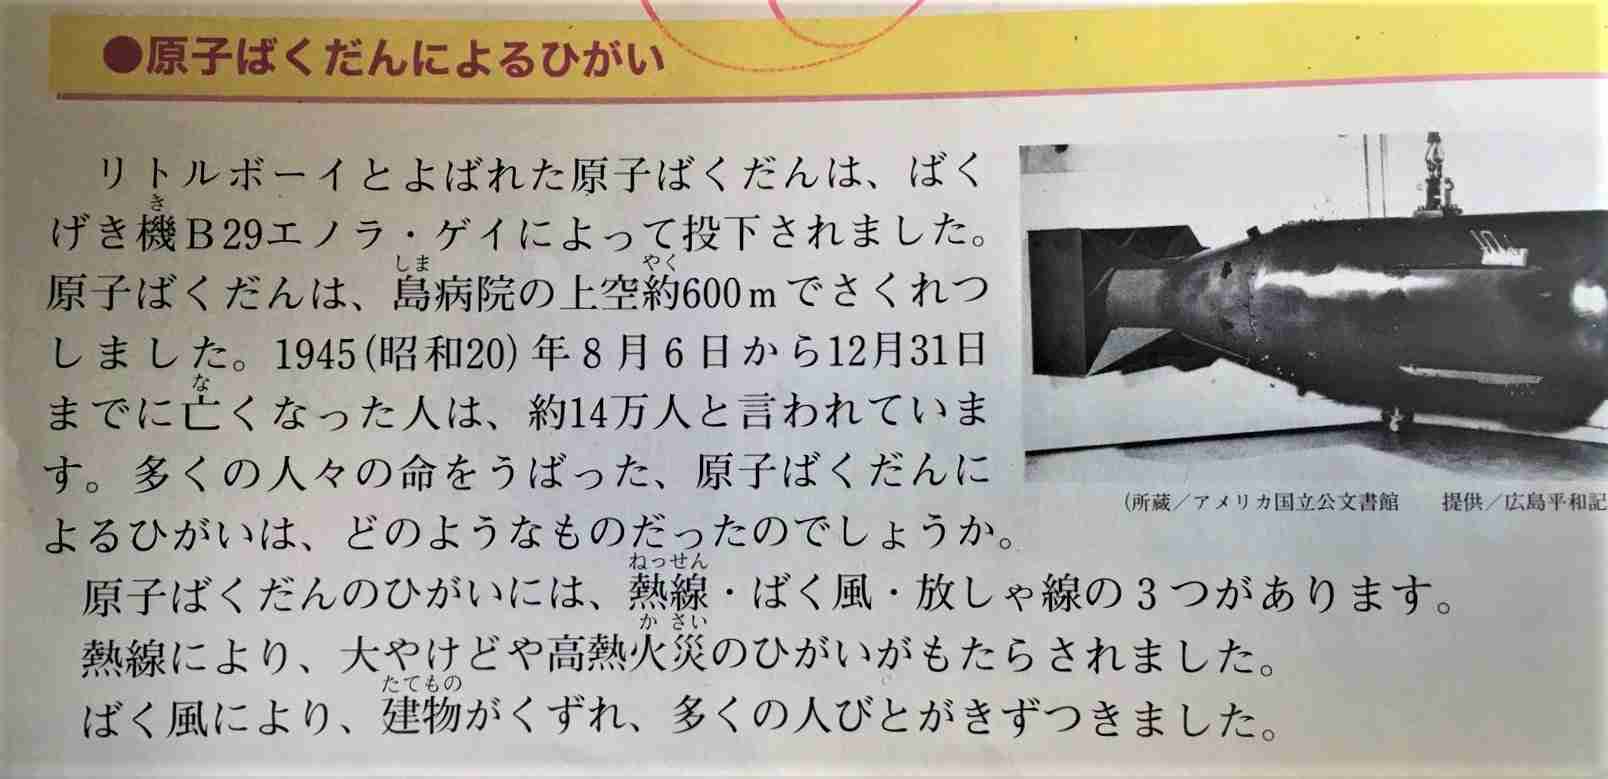 ●原子ばくだんによるひがい
リトルボーイとよばれた原子ばくだんは、ばく
げき機B29エノラ・ゲイによって投下されました。
原子ばくだんは、島病院の上空約600mでさくれつ
しました。1945(昭和20)年8月6日から12月31日
までに亡くなった人は、約14万人と言われていま
す。多くの人々の命をうばった、原子ばくだんに
よるひがいは、どのようなものだったのでしょうか。
(所蔵／アメリカ国立公文書館　提供／広島平和記
原子ばくだんのひがいには、熱線・ばく風・放しゃ線の3つがあります。
熱線により、大やけどや高熱火災のひがいがもたらされました。
ばく風により、建物がくずれ、多くの人びとがきずつきました。